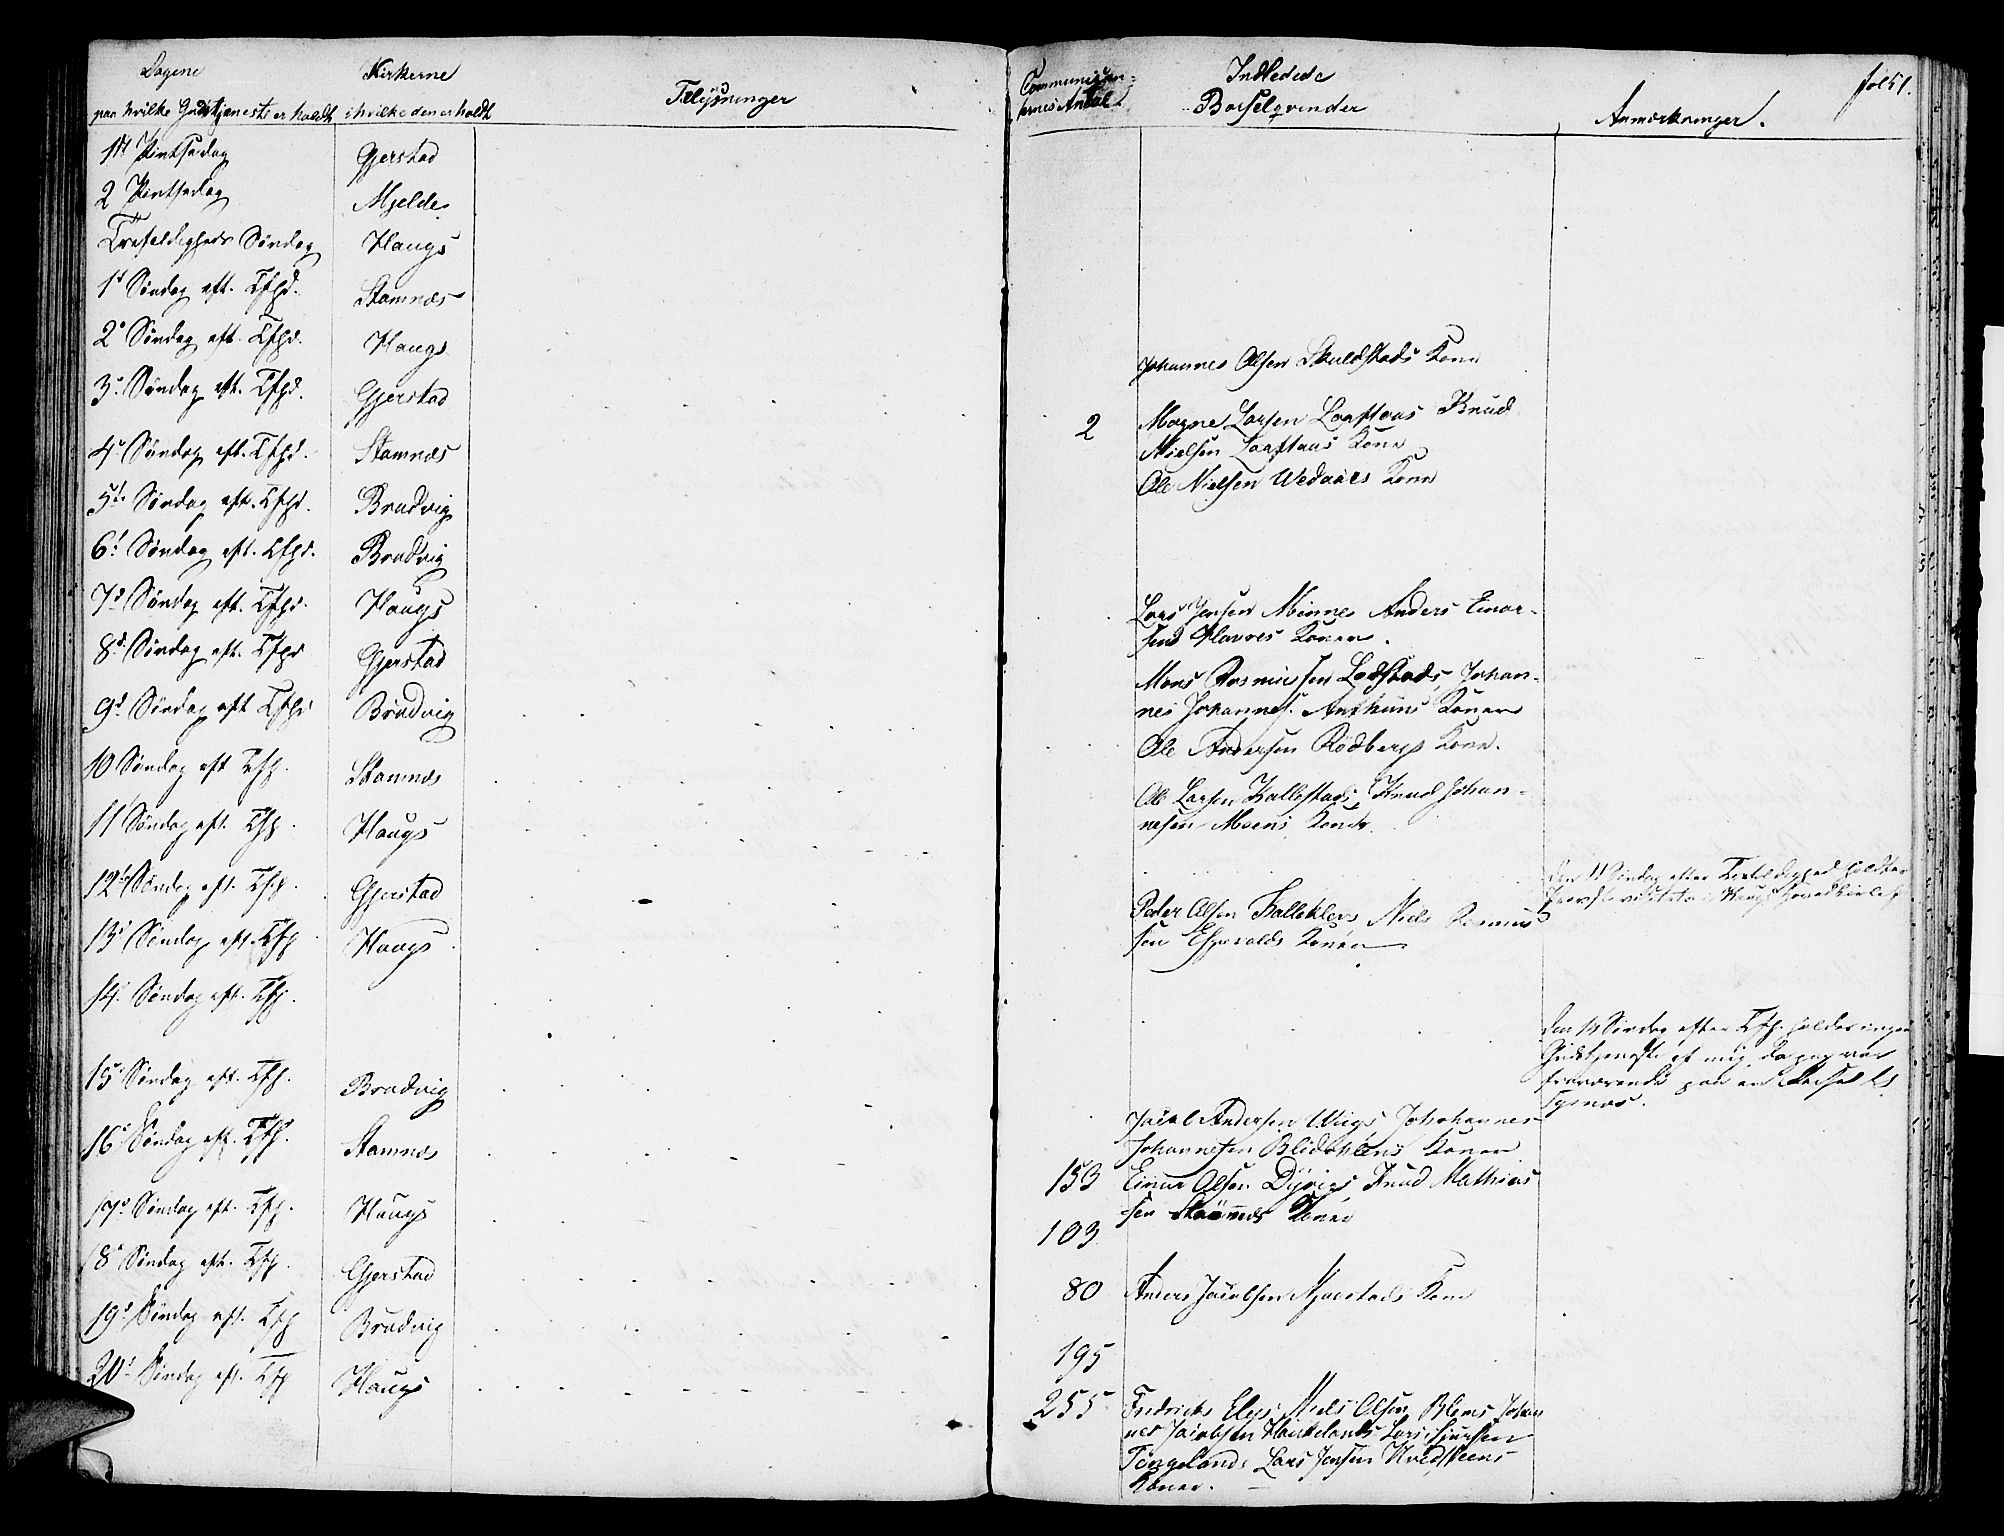 Dagene
paa hvilke Gudstjeneste er holdt
Kirkerne
i hvilke den er holdt
Tilysninger
1st Pintsedag Gjerstad
2 Pintsedag Mjelde
Trefoldigheds Søndag Haugs
1ste Søndag eft. Tfhd. Stamnæs
2d Søndag eft. Tfhd. Haugs
3d Søndag eft. Tfhd. Gjerstad
4d Søndag eft. Tfhd. Stamnæs
5t Søndag eft. Tfhd. Bradvig
6t Søndag eft. Tfhd. Bradvig
7d Søndag eft. Tfhd. Haugs
8d Søndag eft. Tfhd Gjerstad
9d Søndag eft Tfhd Bradvig
10 Søndag eft Tfh. Stamnæs
11 Søndag eft. Tfh. Haugs
12t Søndag eft. Tfh. Gjerstad
13d Søndag eft. Tfh Haugs
14d Søndag eft. Tfh.
15d Søndag eft. Tfh. Bradvig
16d Søndag eft. Tfh. Stamnæs
17d Søndag eft. Tfh. Haugs
18d Søndag eft. Tfh. Gjerstad
19d Søndag eft. Tfh Bradvig
20d Søndag eft. Tfh Haugs
Communican-
ternes Antal
Indledede
Barselqvinder
Anmærkninger.
fol 51.
Johannes Olsen Skuldstads Kone
2 Magne Larsen Laaftaas Knud
Nielsen Laaftaas Kone
Ole Nielsen Wedaaes Kone
Lars Jensen Minnes Anders Einar-
sens Havres Koner.
Mons Rasmussen Lodstads, Johan-
nes Johannes. Anthuns Koner
Ole Andersen Rødbergs Kone.
Ole Larsen Kallestads, Knud Johan-
nesen Moens Koner
Peder Olsen Kalleklevs Niels Rasmus
sen Espevolds Koner
Den 11 Søndag efter Trefoldighed holdtes
Provstevisitats i Haugs Hovedkirke
Den 14 Søndag efter Tfh. holdes ingen
Gudstjeneste af mig, da jeg var
fraværende paa en Reise til
Jacob Andersen Wiigs Johohannes
Johannesen Blidahlens Koner
153 Einar Olsen Dyvigs Knud Mathias
sen Koner
103
80 Anders Jacobsen Mjaastads Kone
195
255 Fredricks Niels Olsen Johan
nes Jacobsen Haukelands Lars Sjursen
Tingelands Lars Jensen Hvidsteens
Koner.